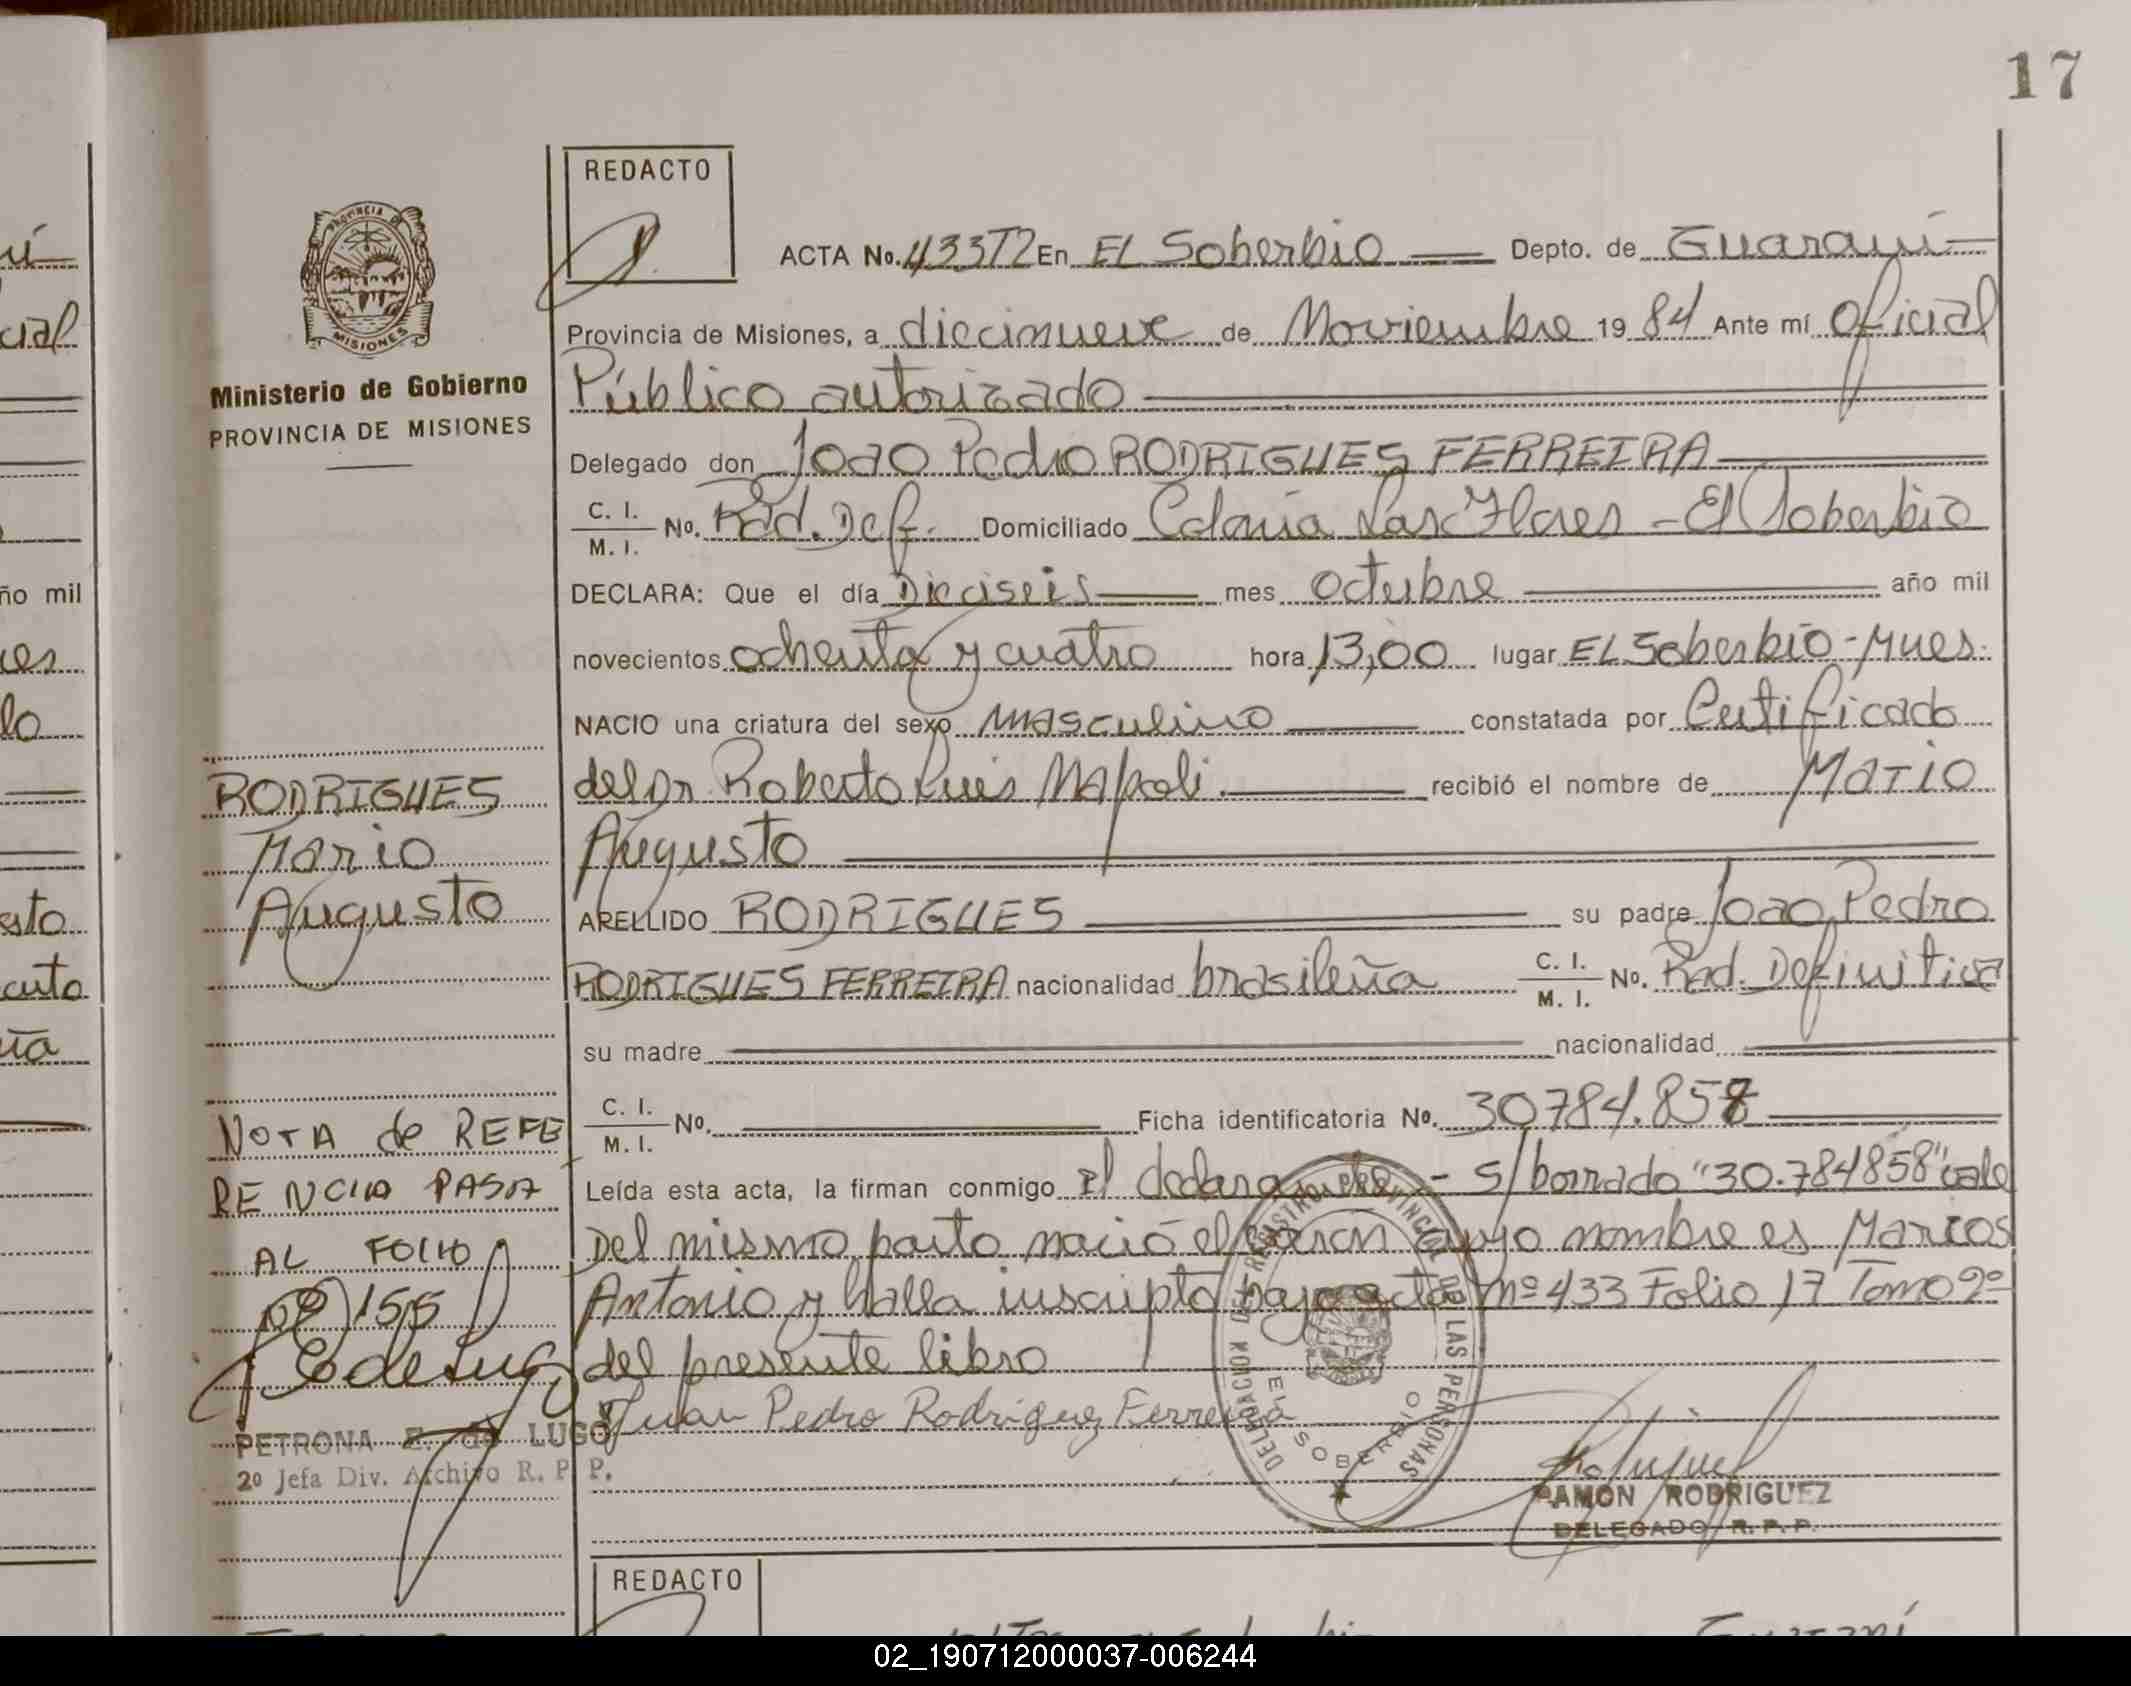 17
REDACTO
ACTA No. 433T2 En EL Soberbio Depto. de Guaraní
Provincia de Misiones, a diecinueve de Noviembre 19 84 Ante mí Oficial
Público autorizado
Delegado don Joao Pedro RODRIGUES FERREIRA
C. I.
M. I. No. Rad. Def. Domiciliado Colonia Las Flores - El Soberbio
DECLARA: Que el día Dieciseis mes octubre año mil
novecientos ochenta y cuatro hora 13,00 lugar EL Soberbio - Mnes.
NACIO una criatura del sexo masculino constatada por Certificado
del Dr Roberto Luis Napoli. recibió el nombre de Mario
Augusto
APELLIDO RODRIGUES su padre Joao Pedro
RODRIGUES FERREIRA nacionalidad brasileña C. I. M. I. No. Rad. Definitiva
su madre nacionalidad
C. I.
M. I. No. Ficha identificatoria No. 30784.858
Leída esta acta, la firman conmigo El declarante - S/borrado "30.784858" vale
Del mismo parto nació el varón cuyo nombre es Marcos
Antonio y halla inscripto bajo acta nº 433 Folio 17 Tomo 2º
del presente libro
Juan Pedro Rodriguez Ferreira
DELEGACION DEL REGISTRO PROVINCIAL DE LAS PERSONAS
EL SOBERBIO
RAMON RODRIGUEZ
DELEGADO R. P. P.
REDACTO
PROVINCIA DE
MISIONES
Ministerio de Gobierno
PROVINCIA DE MISIONES
RODRIGUES
Mario
Augusto
NOTA de REFE
RENCIA PASA
AL FOLIO
Nº 155
PETRONA E. de LUGO
2º Jefa Div. Archivo R. P. P.
ño mil
02_190712000037-006244